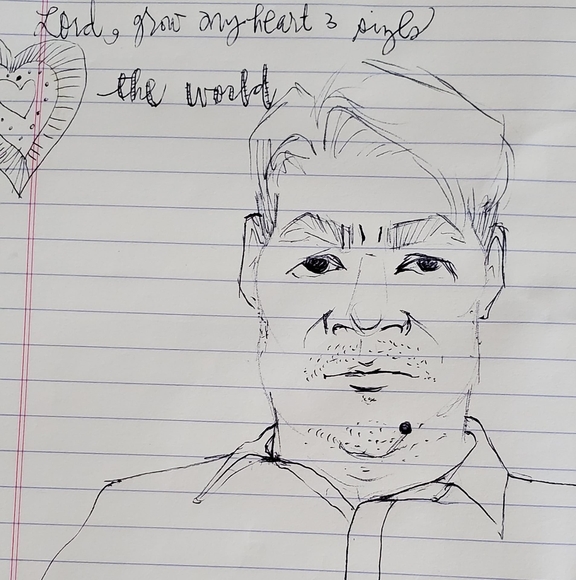 Lord, grow my heart 3 sizes
the world